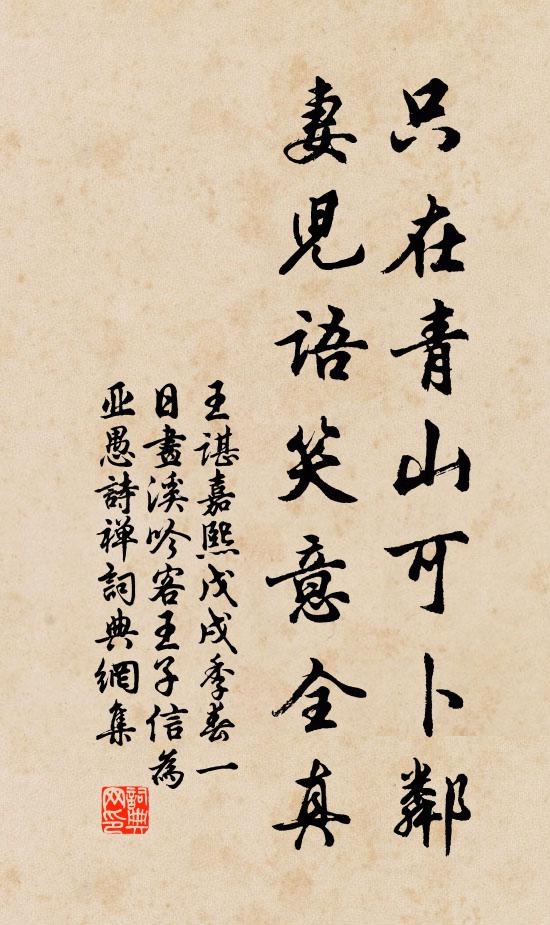 只在青山可卜鄰
妻児語笑意全真
王諶嘉熙戊戌季春一
日畫溪吟客王子信為
亚愚詩禅詞典網集
詞典網印